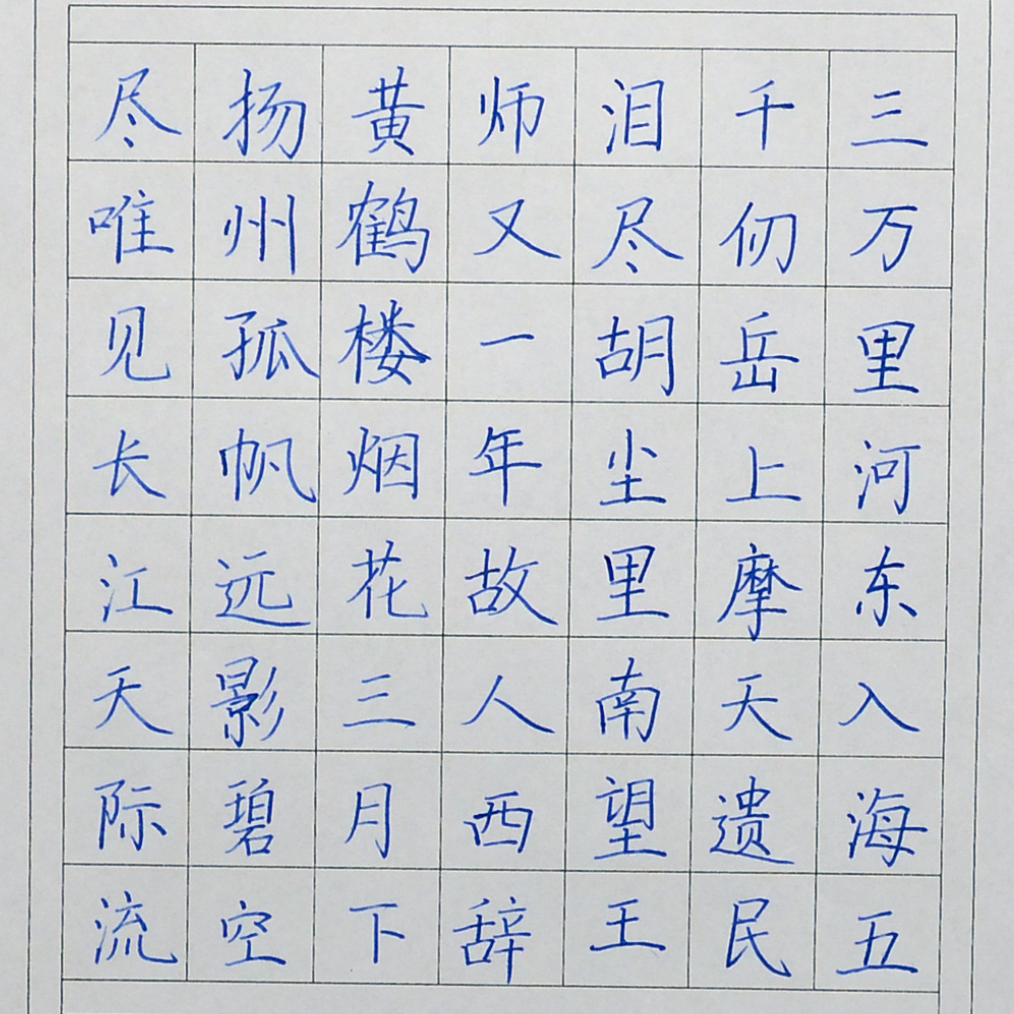 三万里河东入海五
千仞岳上摩天遗民
泪尽胡尘里南望王
师又一年故人西辞
黄鹤楼烟花三月下
扬州孤帆远影碧空
尽唯见长江天际流